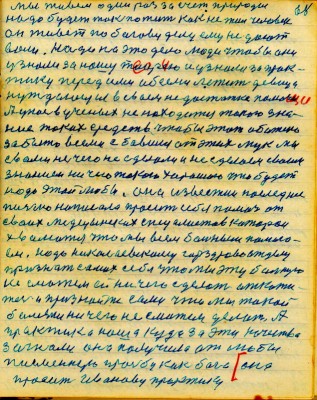 мы живем один раз за счет природы
надо будет так пожит как не там человек
он живет по богову делу ему не дают
воли. Надо на это дело люди чтобы они
узнали за нашу и узнали за прак-
тику перед ними обсели летит девица
нуждающие в своем недостатке помощи
А у вас ученых не находит такого зна-
ние таких средств чтобы этот
забыть всеми бывши от этих мук мы
сделали ничего не сделали и не сделаем своим
знанием ни что такого хорошого что будет
надо этой любы. она известии последние
письмо написала просит себя помоч от
своих медецинских специалистов которои
хвалится что мы всем больным помога-
ем, надо николаевскому горздравотделу
признать самих себя что мы эту больную
не сможем ей ничего сделат
тог и признайте сами что мы такой
болезни ничего не сможем делат. А
практика наша куда за эти качества
загнали она получила от любы
письменную прозбу как бога она
просит Иванову практику